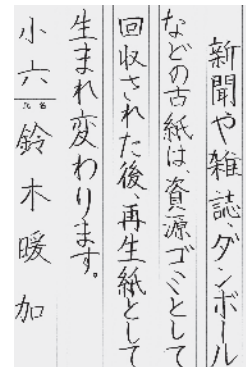 新聞や雑誌、ダンボール
などの古紙は、資源ゴミとして
回収された後、再生紙として
生まれ変わります。
小六 氏名 鈴木暖加